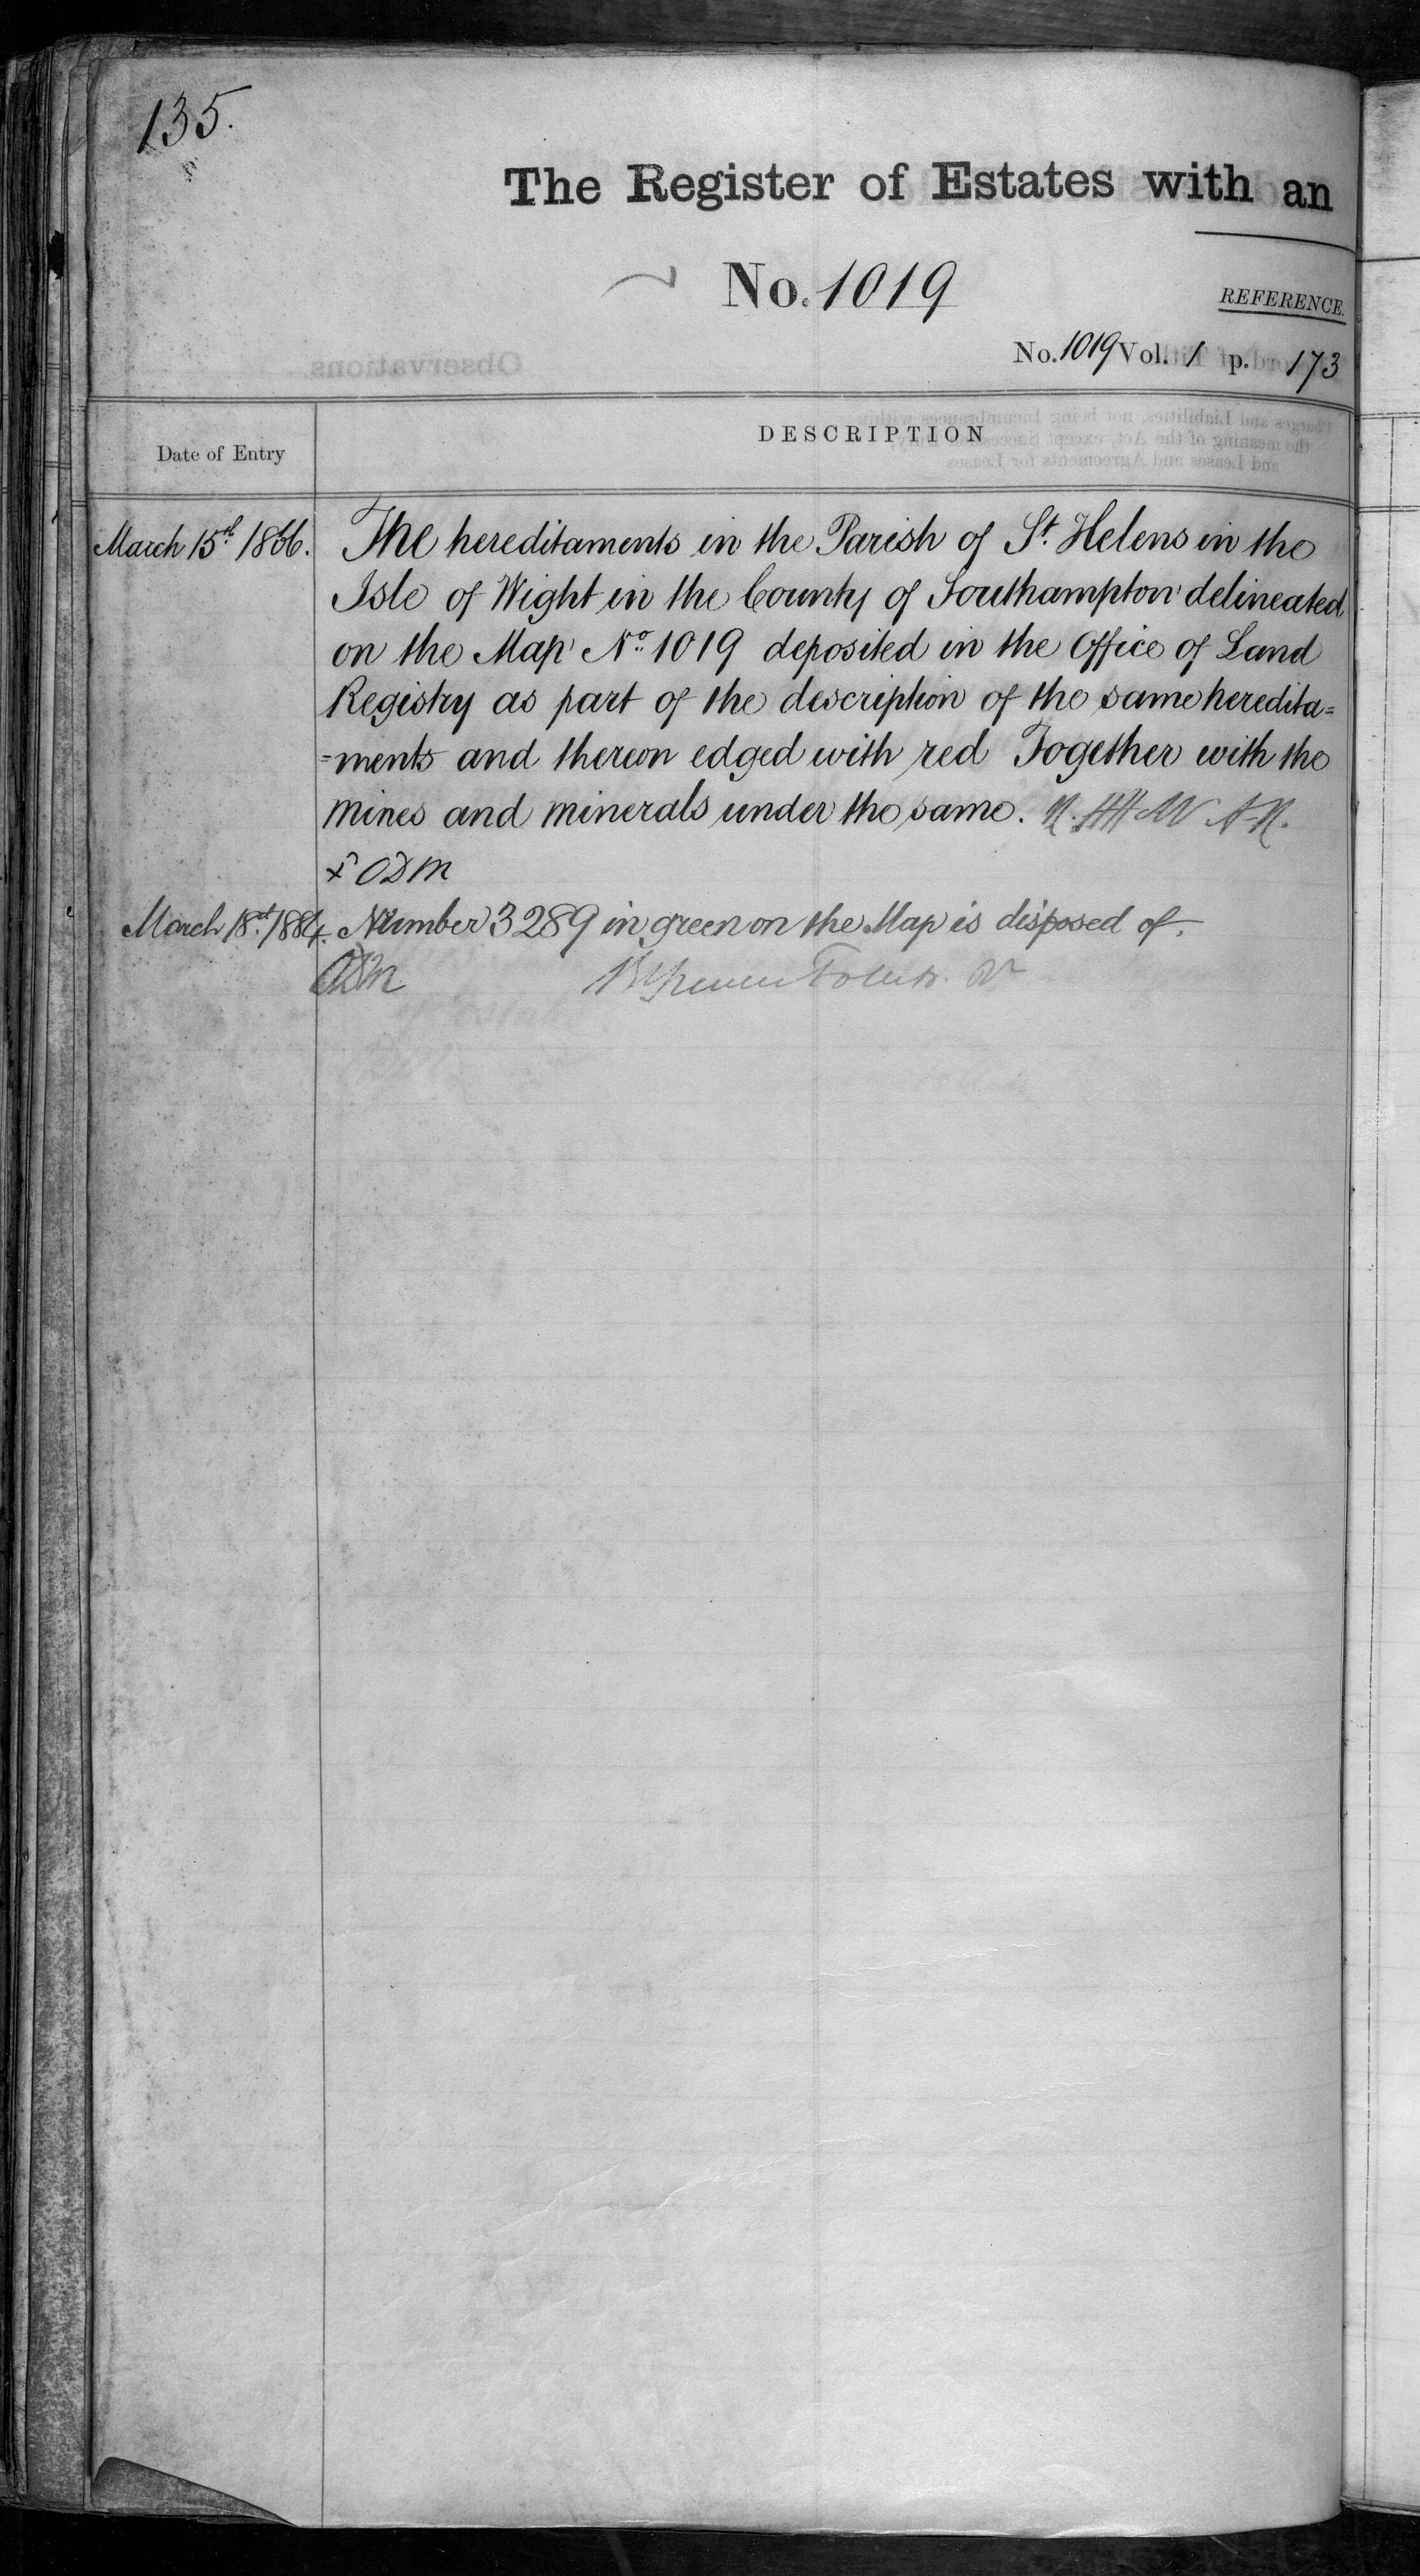 135.
The Register of Estates with an
No. 1019
REFERENCE.
No. 1019 Vol. 1 p. 173
Date of Entry
DESCRIPTION
March 15th 1866. The hereditaments in the Parish of St. Helens in the
Isle of Wight in the County of Southampton delineated
on the Map No. 1019 deposited in the Office of Land
Registry as part of the description of the same heredita=
=ments and thereon edged with red Together with the
mines and minerals under the same.
March 18th 1884. Number 3289 in green on the Map is disposed of.